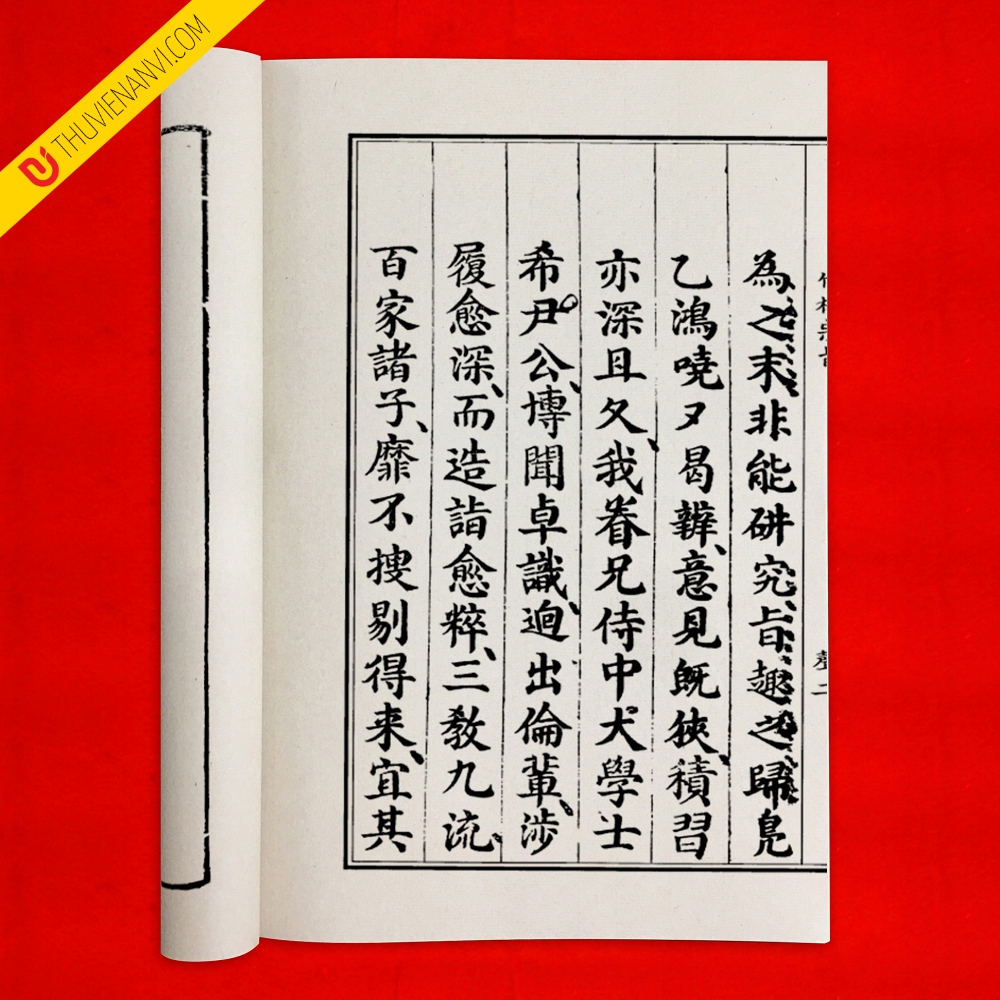 THUVIENANVI.COM
為之末非能研究旨趣之歸鳧
乙鴻嘵夕曷辨、意見既狹、積習
亦深且久、我眷兄侍中大學士
希尹公、博聞卓識、逈出倫輩、涉
履愈深、而造詣愈粹、三教九流、
百家諸子、靡不搜剔得来、宜其